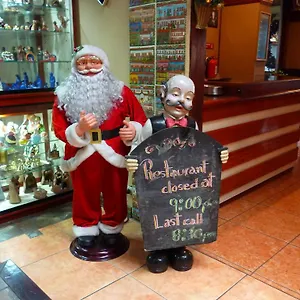 Restaurant
closed at
9:00
Last call
8:30